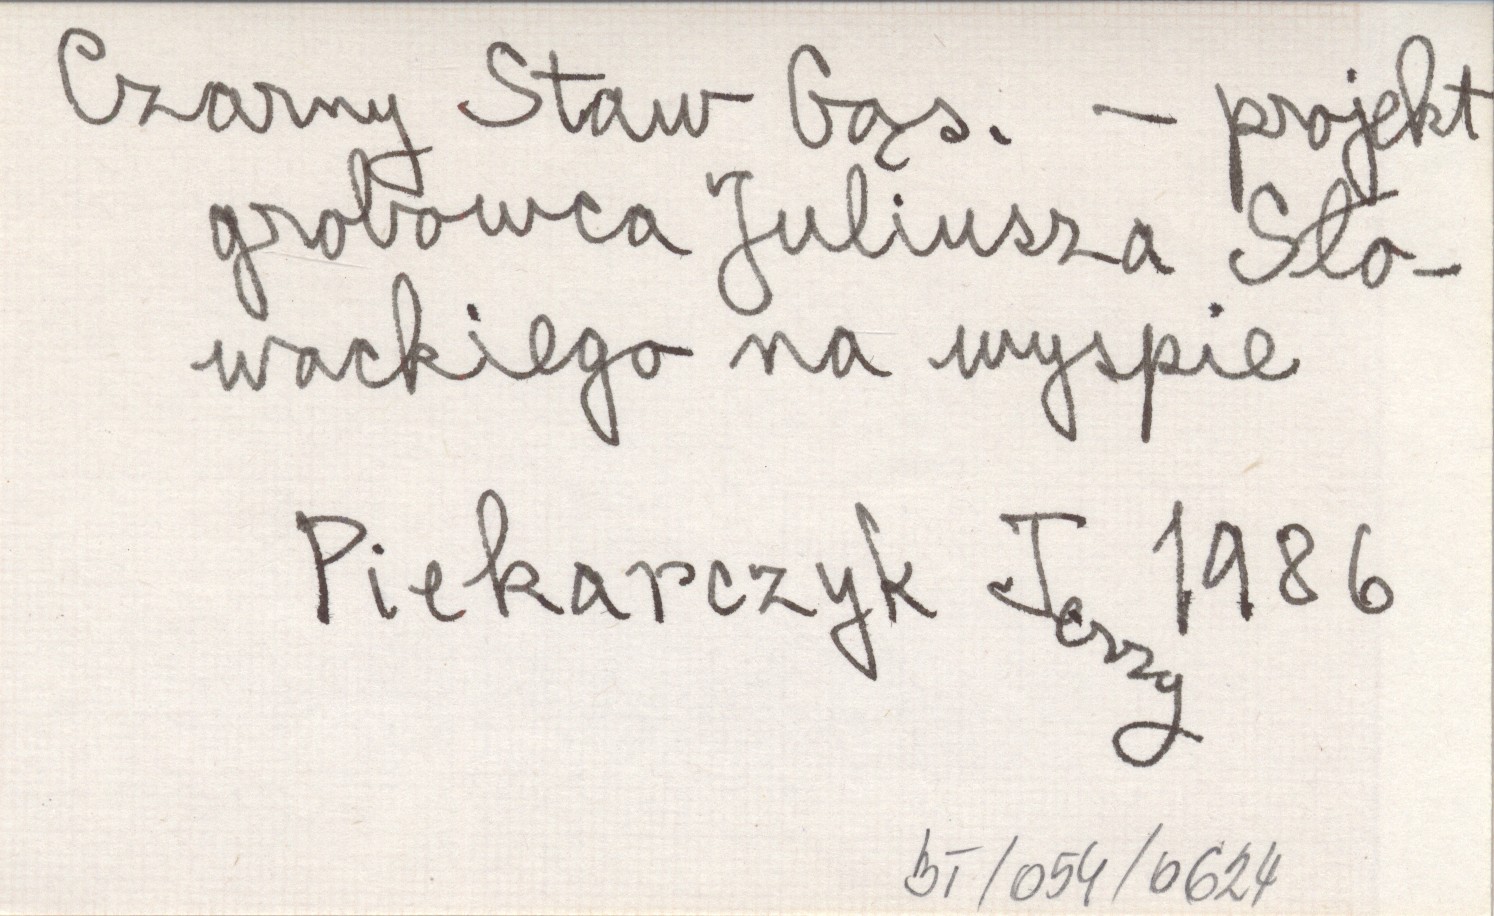 Czarny Staw Gąs. – projekt
grobowca Juliusza Sło-
wackiego na wyspie
Piekarczyk Jerzy 1986
BT/054/0624